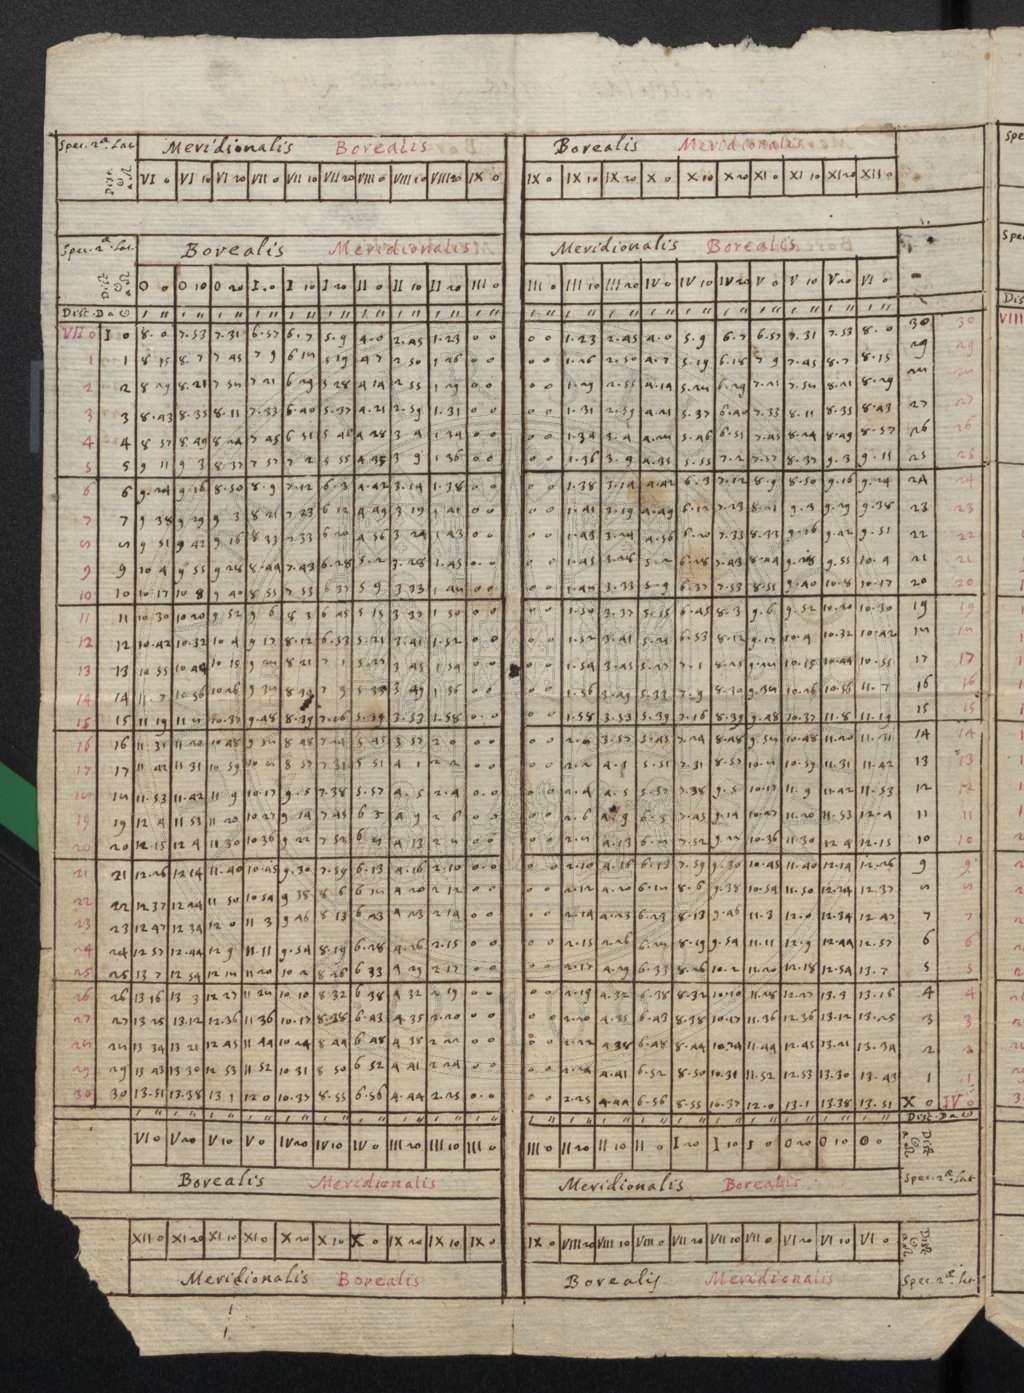 Spec. 2ª. Lat Meridionalis Borealis Borealis Meridionalis
Dist. ☉ a ☊ VI 0 VI 10 VI 20 VII 0 VII 10 VII 20 VIII 0 VIII 10 VIII 20 IX 0 IX 0 IX 10 IX 20 X 0 X 10 X 20 XI 0 XI 10 XI 20 XII 0
Spec. 2ª. Lat Borealis Meridionalis Meridionalis Borealis
Dist ☉ a ☊ 0 0 0 10 0 20 I 0 I 10 I 20 II 0 II 10 II 20 III 0 III 0 III 10 III 20 IV 0 IV 10 IV 20 V 0 V 10 V 20 VI 0
Dist. D a ☉
VII 0 I 0 8. 0 7.53 7.31 6.57 6. 7 5. 9 4. 0 2.45 1.23 0 0 0 0 1.23 2.45 4. 0 5. 9 6. 7 6.57 7.31 7.53 8. 0 30 30
1 1 8 15 8. 7 7 45 7 9 6 18 5 19 4 7 2 50 1 26 0 0 0 0 1.26 2.50 4.7 5.19 6.18 7 9 7.45 8.7 8.15 29 29
2 2 8 29 8.21 7 58 7 21 6 29 5 28 4 14 2 55 1 29 0 0 0 0 1.29 2.55 4.14 5.28 6.29 7.21 7.58 8.21 8.29 28 28
3 3 8.43 8.35 8.11 7.33 6.40 5.37 4.21 2.59 1.31 0 0 0 0 1.31 2.59 4.21 5.37 6.40 7.33 8.11 8.35 8.43 27 27
4 4 8 57 8 49 8 24 7 45 6 51 5 46 4 28 3 4 1 34 0 0 0 0 1.34 3.4 4.28 5.46 6.51 7.45 8.24 8.49 8.57 26 26
5 5 9 11 9 3 8.37 7 57 7 2 5 55 4 35 3 9 1 36 0 0 0 0 1.36 3.9 4.35 5.55 7.2 7.57 8.37 9.3 9.11 25 25
6 6 9.24 9.16 8.50 8.9 7.12 6.3 4.42 3.14 1.38 0 0 0 0 1.38 3.14 4.42 6.3 7.12 8.9 8.50 9.16 9.24 24 24
7 7 9 38 9 29 9 3 8 21 7 23 6 12 4 49 3 19 1 41 0 0 0 0 1.41 3.19 4.49 6.12 7.23 8.21 9.3 9.29 9.38 23 23
8 8 9 51 9 42 9 16 8 33 7 33 6 20 4 56 3 24 1 43 0 0 0 0 1.43 3.24 4.56 6.20 7.33 8.33 9.16 9.42 9.51 22 22
9 9 10 4 9 55 9 28 8.44 7.43 6.28 5.2 3.28 1.45 0 0 0 0 1.45 3.28 5.2 6.28 7.43 8.44 9.28 9.55 10.4 21 21
10 10 10.17 10 8 9 40 8 55 7 53 6 37 5 9 3 33 1 48 0 0 0 0 1.48 3.33 5.9 6.37 7.53 8.55 9.40 10.8 10.17 20 20
11 11 10.30 10 20 9 52 9 6 8 3 6 45 5 15 3 37 1 50 0 0 0 0 1.50 3.37 5.15 6.45 8.3 9.6 9.52 10.20 10.30 19 19
12 12 10.42 10.32 10 4 9 17 8.12 6.53 5.21 3.41 1.52 0 0 0 0 1.52 3.41 5.21 6.53 8.12 9.17 10.4 10.32 10.42 18 18
13 13 10 55 10 44 10 15 9 28 8 21 7 1 5.27 3 45 1 54 0 0 0 0 1.54 3.45 5.27 7.1 8.21 9.28 10.15 10.44 10.55 17 17
14 14 11. 7 10.56 10.26 9 38 8 30 7 9 5 33 3 49 1 56 0 0 0 0 1.56 3.49 5.33 7.9 8.30 9.38 10.26 10.56 11.7 16 16
15 15 11 19 11 8 10.37 9.48 8.39 7.16 5.39 3.53 1.58 0 0 0 0 1.58 3.53 5.39 7.16 8.39 9.48 10.37 11.8 11.19 15 15
16 16 11 31 11.20 10 48 9 58 8 48 7 24 5 45 3 57 2 0 0 0 0 0 2.0 3.57 5.45 7.24 8.48 9.58 10.48 11.20 11.31 14 14
17 17 11 42 11 31 10 59 10 8 8 57 7 31 5 51 4 1 2 2 0 0 0 0 2.2 4.1 5.51 7.31 8.57 10.8 10.59 11.31 11.42 13 13
18 18 11.53 11.42 11 9 10.17 9.5 7.38 5.57 4.5 2.4 0 0 0 0 2.4 4.5 5.57 7.38 9.5 10.17 11.9 11.42 11.53 12 12
19 19 12 4 11 53 11 20 10 27 9 14 7 45 6 3 4 9 2 6 0 0 0 0 2.6 4.9 6.3 7.45 9.14 10.27 11.20 11.53 12.4 11 11
20 20 12 15 12 4 11 30 10 36 9 22 7 52 6 8 4 13 2 8 0 0 0 0 2.8 4.13 6.8 7.52 9.22 10.36 11.30 12 4 12.15 10 10
21 21 12.26 12 14 11.40 10.45 9.30 7.59 6.13 4.16 2.10 0 0 0 0 2.10 4.16 6.13 7.59 9.30 10.45 11.40 12.14 12.26 9 9
22 22 12 37 12 24 11 50 10 54 9 38 8 6 6 18 4 20 2 12 0 0 0 0 2.12 4.20 6.18 8.6 9.38 10.54 11.50 12.24 12.37 8 8
23 23 12 47 12 34 12 0 11 3 9 46 8 13 6 23 4 23 2 14 0 0 0 0 2.14 4.23 6.23 8.13 9.46 11.3 12.0 12.34 12.47 7 7
24 24 12 57 12.44 12 9 11.11 9.54 8.19 6.28 4.26 2.15 0 0 0 0 2.15 4.26 6.28 8.19 9.54 11.11 12.9 12.44 12.57 6 6
25 25 13 7 12 54 12 18 11 20 10 2 8 26 6 33 4 29 2.17 0 0 0 0 2.17 4.29 6.33 8.26 10.2 11.20 12.18 12.54 13.7 5 5
26 26 13 16 13 3 12 27 11 28 10 10 8.32 6 38 4 32 2 19 0 0 0 0 2.19 4.32 6.38 8.32 10.10 11.28 12.27 13.3 13.16 4 4
27 27 13 25 13.12 12.36 11 36 10.17 8.38 6.43 4.35 2.20 0 0 0 0 2.20 4.35 6.43 8.38 10.17 11.36 12.36 13.12 13.25 3 3
28 28 13 34 13 21 12 45 11 44 10 24 8 44 6 48 4 38 2 22 0 0 0 0 2.22 4.38 6.48 8.44 10.24 11.44 12.45 13.21 13.34 2 2
29 29 13 43 13 30 12 53 11.52 10 31 8 50 6 52 4 41 2 24 0 0 0 0 2.24 4.41 6.52 8.50 10.31 11.52 12.53 13.30 13.43 1 1
30 30 13.51 13.38 13 1 12 0 10.37 8.55 6.56 4.44 2.25 0 0 0 0 2.25 4.44 6.56 8.55 10.37 12.0 13.1 13.38 13.51 X 0 IV 0
Dist. D a ☉
VI 0 V 20 V 10 V 0 IV 20 IV 10 IV 0 III 20 III 10 III 0 III 0 II 20 II 10 II 0 I 20 I 10 I 0 0 20 0 10 0 0 Dist ☉ a ☊
Borealis Meridionalis Meridionalis Borealis Spec. 2ª. Lat
XII 0 XI 20 XI 10 XI 0 X 20 X 10 X 0 IX 20 IX 10 IX 0 IX 0 VIII 20 VIII 10 VIII 0 VII 20 VII 10 VII 0 VI 20 VI 10 VI 0 Dist ☉ a ☊
Meridionalis Borealis Borealis Meridionalis Spec. 2ª. Lat